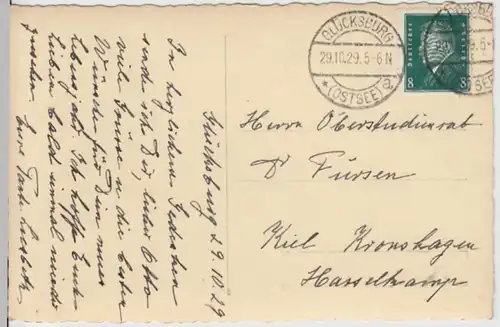 GLÜCKSBURG
29.10.29. 5-6 N
* (OSTSEE) a
Deutsches Reich
8 8
Herrn Oberstudienrat
Dr Fürsen
Kiel Kronshagen
Hasselkamp
Glücksburg 29.10.29
In herzlichem Gedenken
sende ich Dir, lieber Otto
viele Grüsse u. die besten
Wünsche für Dein neues
Lebensjahr. Ich hoffe Euch
Lieben bald einmal wieder
Eure Tante